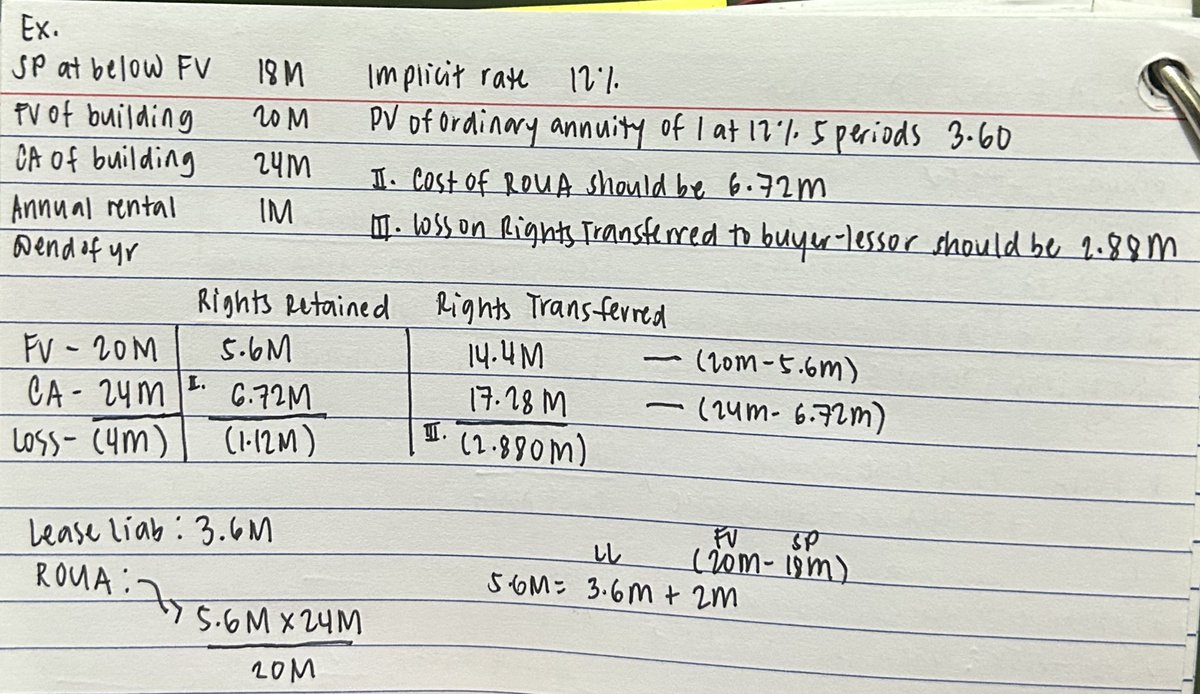 Ex.
SP at below FV 18M Implicit rate 12%.
FV of building 20M PV of ordinary annuity of 1 at 12% 5 periods 3.60
CA of building 24M II. Cost of ROUA should be 6.72M
Annual rental 1M III. Loss on Rights Transferred to buyer-lessor should be 2.88M
@end of yr
Rights Retained Rights Transferred
FV - 20M 5.6M 14.4M — (20M-5.6M)
CA - 24M II. 6.72M 17.28M — (24M-6.72M)
Loss- (4M) (1.12M) III. (2.880M)
Lease Liab: 3.6M
FV SP
LL (20M-18M)
ROUA: 5.6M = 3.6M + 2M
5.6M x 24M
20M